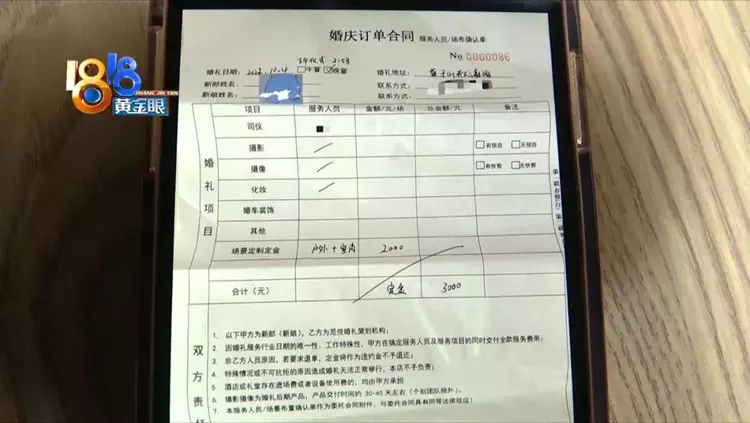 1818
HUANG JIN YAN
黄金眼
婚庆订单合同 服务人员/场布确认单
No 0000086
下午仪式 2:58
婚礼日期: 10.4 午宴 晚宴 婚礼地址:
新郎姓名: 联系方式:
新娘姓名: 联系方式:
项目 服务人员 金额/元/场 总金额/元 备注
婚礼项目
司仪
摄影 有预告 无预告
摄像 有快剪 无快剪
化妆
婚车装饰
其他
场景定制定金 户外+室内 2000
合计(元) 定金 3000
双方责任
1. 以下甲方为新郎(新娘),乙方为觅悦婚礼策划机构;
2. 因婚礼服务行业日期的唯一性,工作特殊性,甲方在确定服务人员及服务项目的同时交付全款服务费用;
3. 非乙方人员原因,若要求退单,定金将作为违约金不予退还;
4. 特殊情况或不可抗拒的原因造成婚礼无法正常举行,本店不予负责;
5. 酒店或礼堂存在进场费或者设备使用费的,均由甲方承担
6. 摄影摄像为婚礼后期产品,产品交付时间约 30-40 天左右(个别团队除外)。
7. 本服务人员/场景布置确认单作为委托合同附件,与委托合同具有同等法律效应!